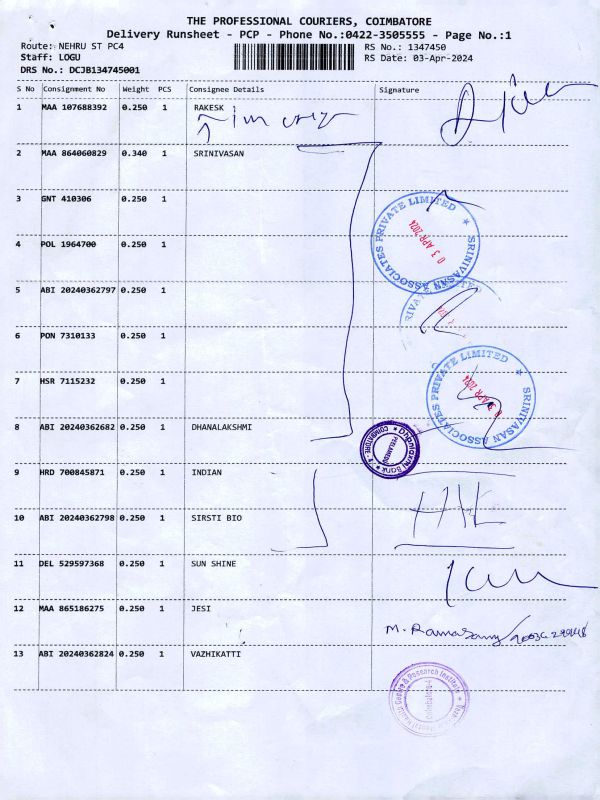 THE PROFESSIONAL COURIERS, COIMBATORE
Delivery Runsheet - PCP - Phone No.:0422-3505555 - Page No.:1
Route: NEHRU ST PC4 RS No.: 1347450
Staff: LOGU RS Date: 03-Apr-2024
DRS No.: DCJB134745001
S No Consignment No Weight PCS Consignee Details Signature
1 MAA 107688392 0.250 1 RAKESK
2 MAA 864060829 0.340 1 SRINIVASAN
3 GNT 410306 0.250 1
SRINIVASAN ASSOCIATES PRIVATE LIMITED
03 APR 2024
4 POL 1964700 0.250 1
5 ABI 20240362797 0.250 1
6 PON 7310133 0.250 1
SRINIVASAN ASSOCIATES PRIVATE LIMITED
03 APR 2024
7 HSR 7115232 0.250 1
8 ABI 20240362682 0.250 1 DHANALAKSHMI
Bank
COIMBATORE
9 HRD 700845871 0.250 1 INDIAN
10 ABI 20240362798 0.250 1 SIRSTI BIO
11 DEL 529597368 0.250 1 SUN SHINE
12 MAA 865186275 0.250 1 JESI
M. Ramasamy
13 ABI 20240362824 0.250 1 VAZHIKATTI
& Research Institute